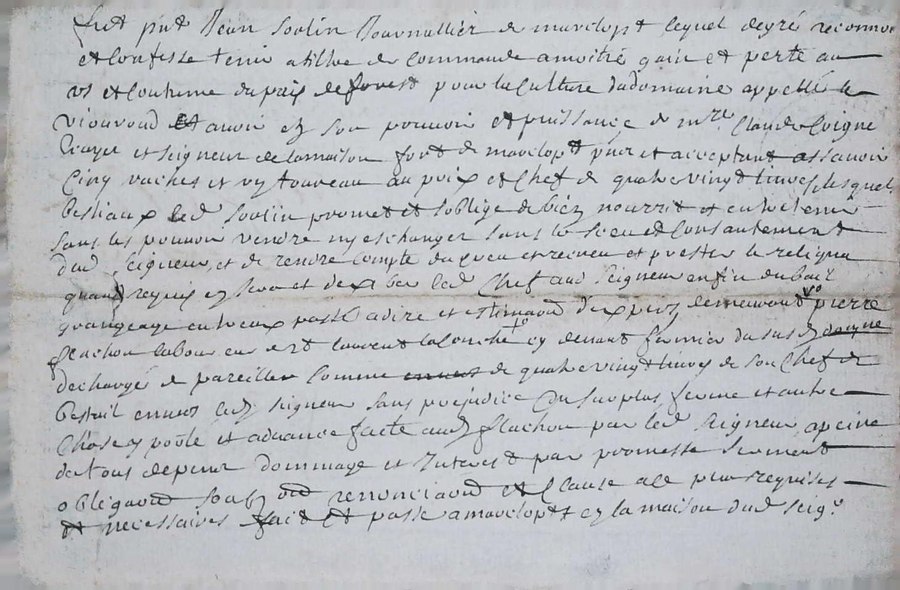 fut p̄nt Jean Soulin Journallier de marclopt lequel degré reconnoi
et confesse tenir a tiltre de commande a moitié gain et perte au
us et coutume du païs de forest pour la culture du domaine appellé le
viouroud et avoir en son pouvoir et puissance de mre Claude Coigne
Ecuyer et seigneur de la maison fort de marclopt p̄nt et acceptant assavoir
Cinq vaches et un toureau au prix et chef de quatre vingt livres, lesquel
bestiaux led Soulin promet et s'oblige de bien nourrir et entretenir
sans les pouvoir vendre ny eschanger sans le sceu et consantement
dud Seigneur, et de rendre compte du creu et receu et prester le
quand requis en sera et de led Chef aud Seigneur en fin du bail
grangeage entreux passé a dire et demeurant pierre
flachon laboureur et laurent cy devant fermier du susd
dechargé de pareille somme de quatre vingt livres de son Chef de
bestail envers led Seigneur sans prejudice du surplus ferme et autre
Chose en reste et advance faite aud flachon par led Seigneur, a peine
de tous despens dommage et Interest par promesse serment
obligaõn soubz̃on renonciaõn et Clause a ce plus requises
et necessaires fait et passé a marclopt en la maison dud seigr